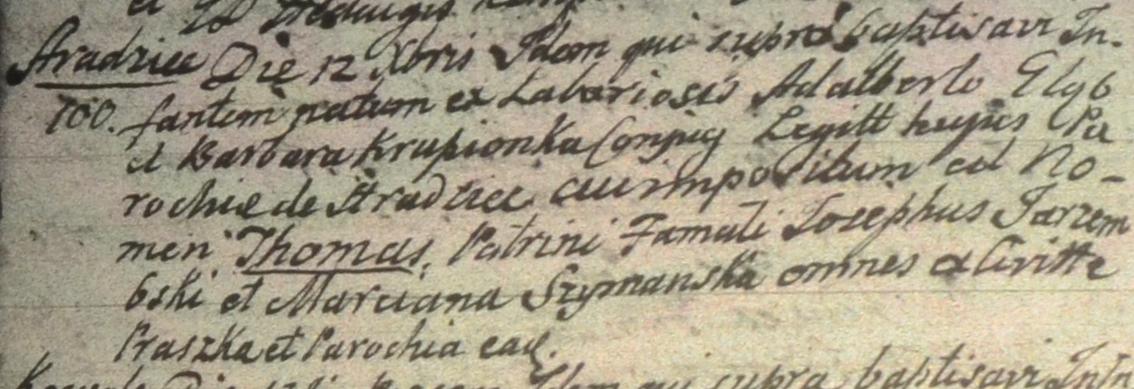 et Hedvigis
Stradziee Die 12 Xbris Idem qui supra baptisavi In-
100. fantem natum ex Laboriosis Adalberto Glab
et Barbara Krupionka Conjug Legitt hujus Pa
rochiæ de Stradziec cui impositum est No-
men Thomas, Patrini Famati Josephus Jarzem
bski et Marcianna Szymanska omnes ex Civitte
Praszka et Parochia ead.
Die Idem qui supra baptisavi Infn